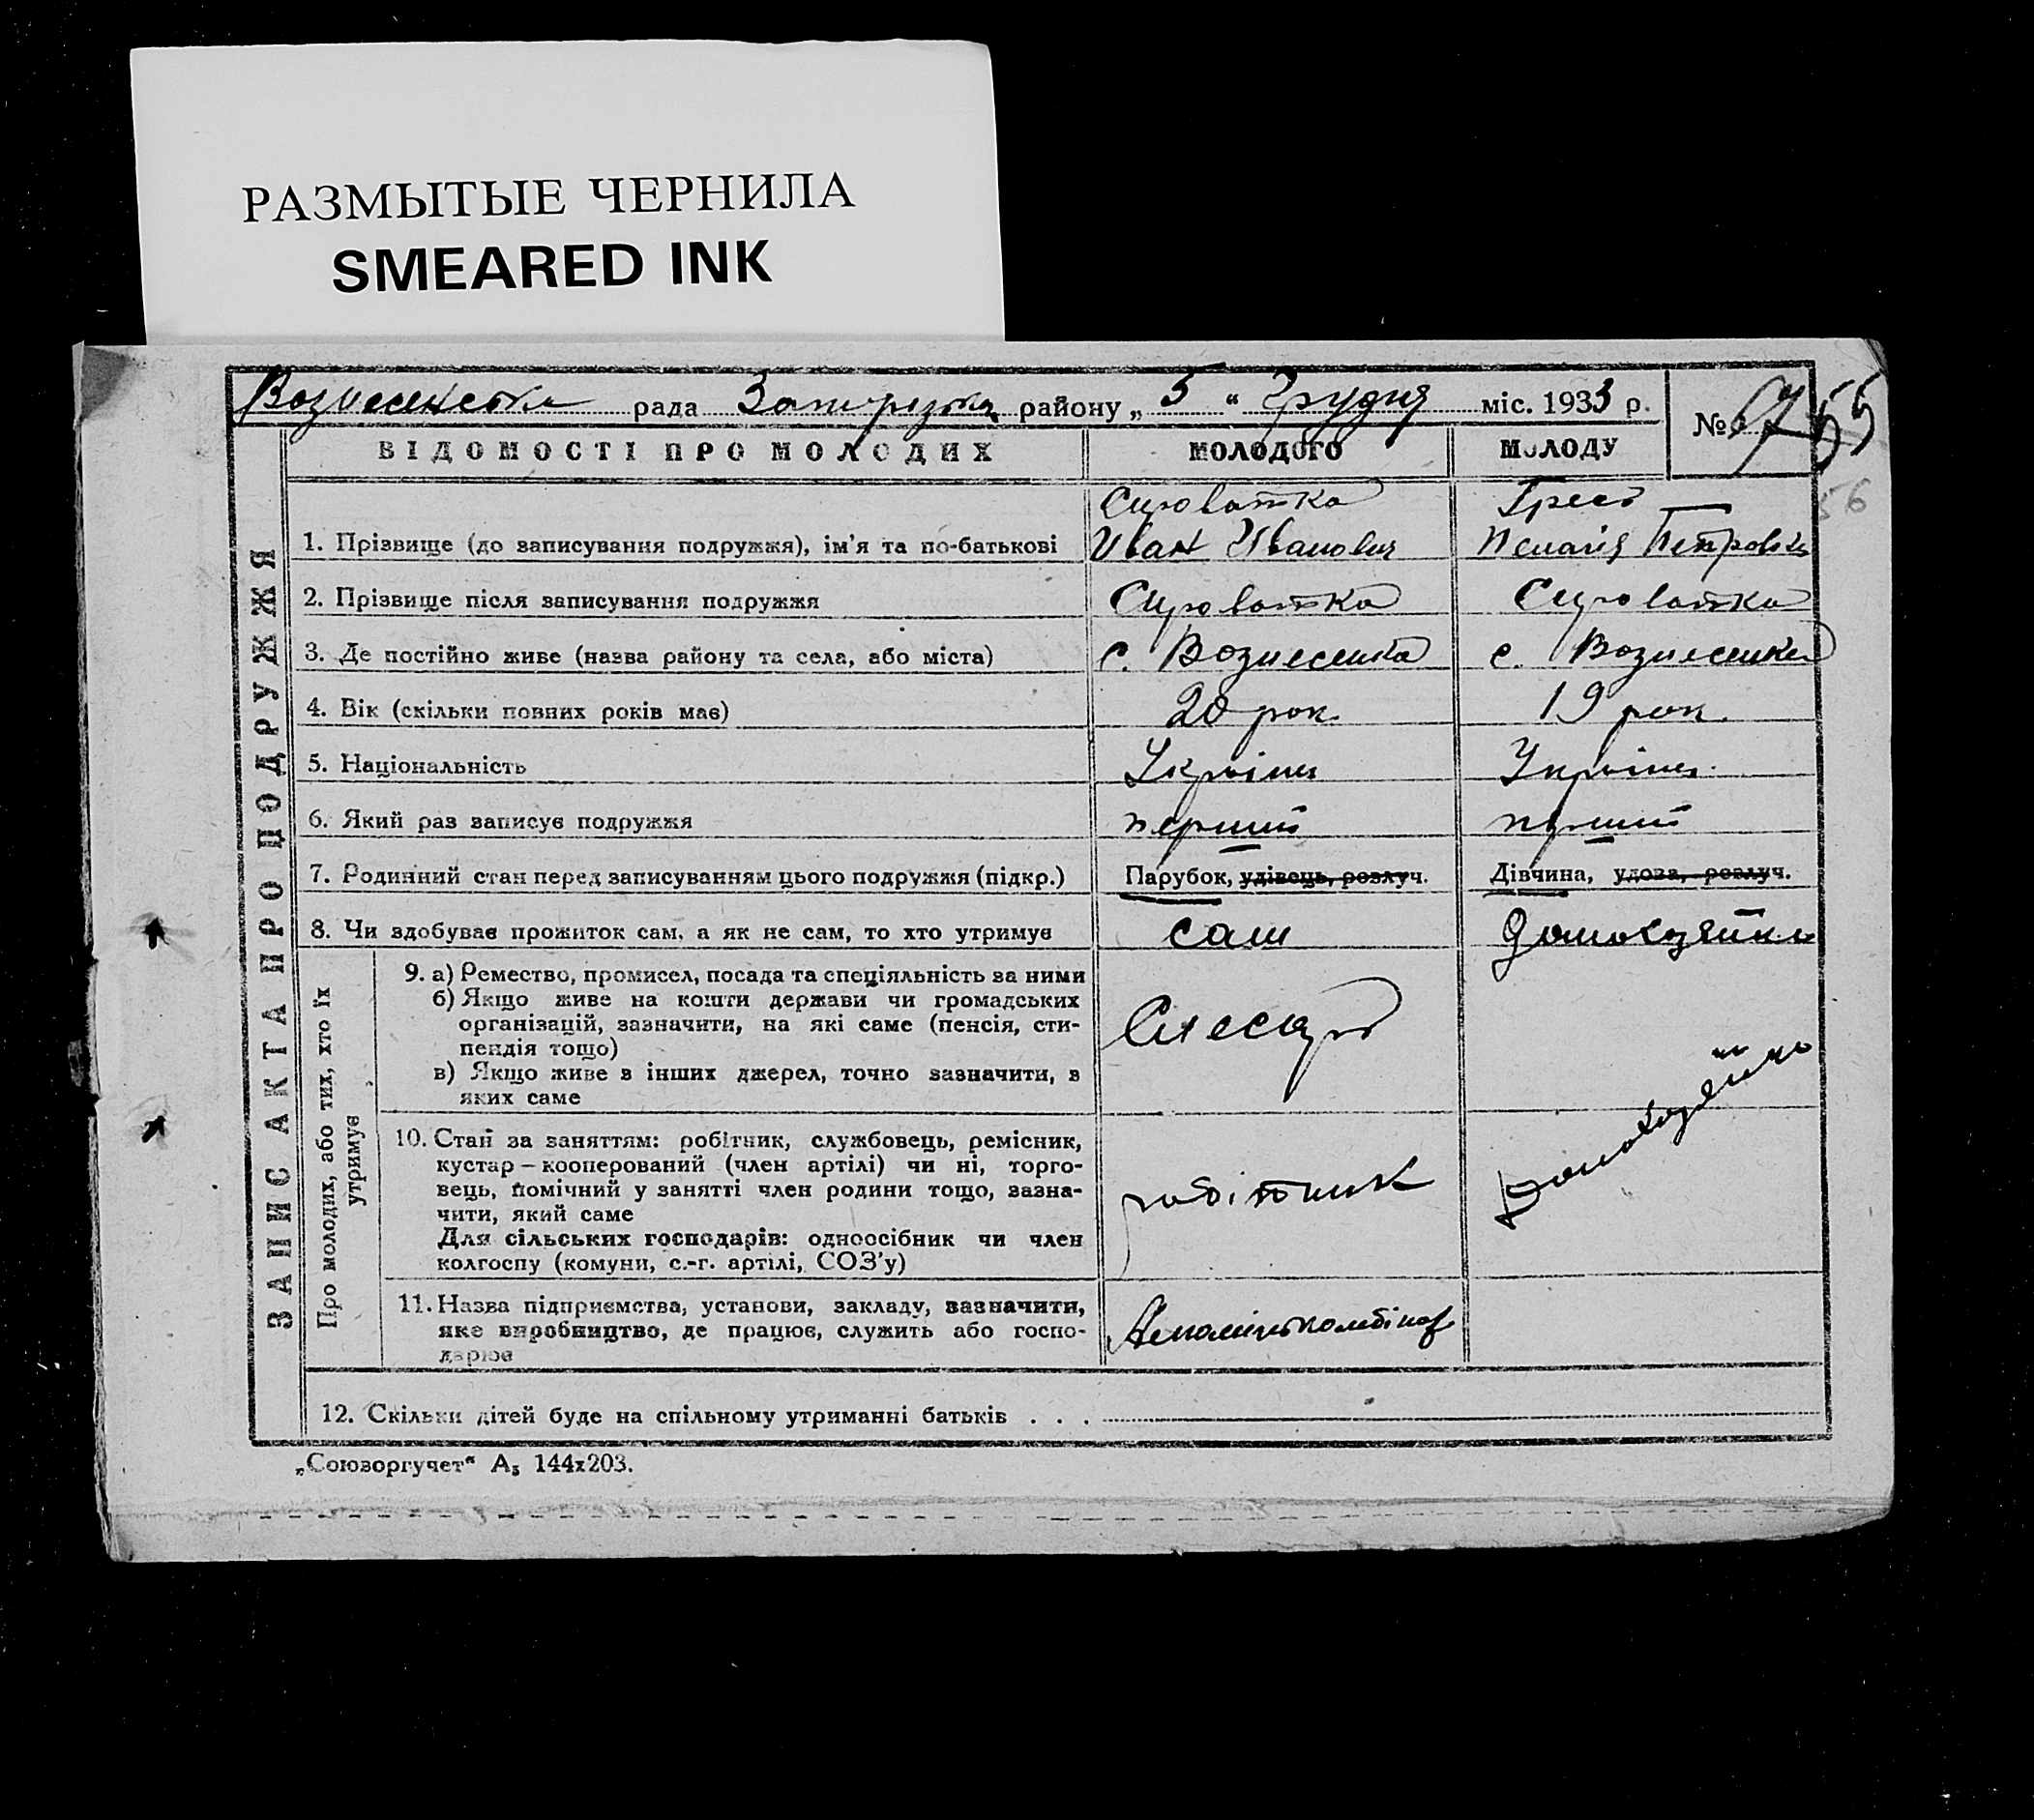 РАЗМЫТЫЕ ЧЕРНИЛА
SMEARED INK
Вознесенська рада Запорізька району „ 5 “ Грудня міс. 1933 р.
№ 55
56
ВІДОМОСТІ ПРО МОЛОДИХ МОЛОДОГО МОЛОДУ
ЗАПИС АКТА ПРО ПОДРУЖЖЯ
Сироватка
1. Прізвище (до записування подружжя), ім’я та по-батькові Иван Иванович Пелагія Петровна
2. Прізвище після записування подружжя Сироватка Сироватка
3. Де постійно живе (назва району та села, або міста) с. Вознесенка с. Вознесенка
4. Вік (скільки повних років має) 20 рок. 19 рок.
5. Національність Українц Українц.
6. Який раз записує подружжя перший перший
7. Родинний стан перед записуванням цього подружжя (підкр.) Парубок, удівець, розлуч. Дівчина, удова, розлуч.
8. Чи здобуває прожиток сам, а як не сам, то хто утримує сам Домохозяйка
Про молодих, або тих, хто їх
утримує
9. а) Ремество, промисел, посада та спеціяльність за ними
б) Якщо живе на кошти держави чи громадських
організацій, зазначити, на які саме (пенсія, сти-
пендія тощо)
в) Якщо живе з інших джерел, точно зазначити, з
яких саме
Слесарь
10. Стан за заняттям: робітник, службовець, ремісник,
кустар — кооперований (член артілі) чи ні, торго-
вець, помічний у занятті член родини тощо, зазна-
чити, який саме
Для сільських господарів: одноосібник чи член
колгоспу (комуни, с.-г. артілі, СОЗ’у)
робітник
Домохозяйка
11. Назва підприємства, установи, закладу, зазначити,
яке виробництво, де працює, служить або госпо-
дарює
Алюмінькомбінат
12. Скільки дітей буде на спільному утриманні батьків . . .
„Союзоргучет“ А₅ 144х203.